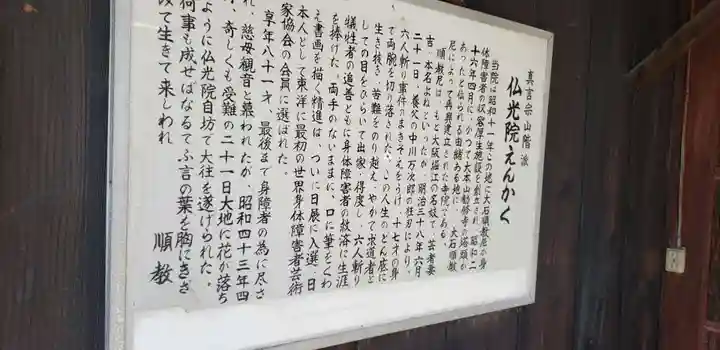 真言宗山階派
仏光院えんかく
当院は昭和十一年この地に大石順教尼が身
体障害者の収容厚生施設を創立され、昭和二
十六年四月に、かつて大本山勧修寺の塔頭が
あったと伝られる由緒ある地に、大石順教
尼によって再興建立された寺院である。
順教尼は、もと大阪堀江の名妓で、芸者妻
吉、本名よねといったが、明治三十八年六月
二十一日、養父の中川万次郎の狂刃により、
六人斬り事件のまきぞえをうけ、十七才の身
で両腕を切り落された、この人生のどん底に
生き抜き、苦難をのり越え、やがて求道者と
しての目をひらいて出家・得度し、六人斬り
犠牲者の追善ともに身体障害者の救済に生涯
を捧げた、両手のないままに、口に筆をくわ
え書画を描く精進は、ついに日展に入選、日
本人として東洋に最初の世界身体障害者芸術
家協会の会員に選ばれた。
享年八十一才、最後まで身障者の為に尽さ
れ、慈母観音と慕われたが、昭和四十三年四
、奇しくも受難の二十一日大地に花が落ち
ように仏光院自坊で大往を遂げられた。
何事も成せばなるてふ言の葉を胸にきざ
て生きて来しわれ
順教